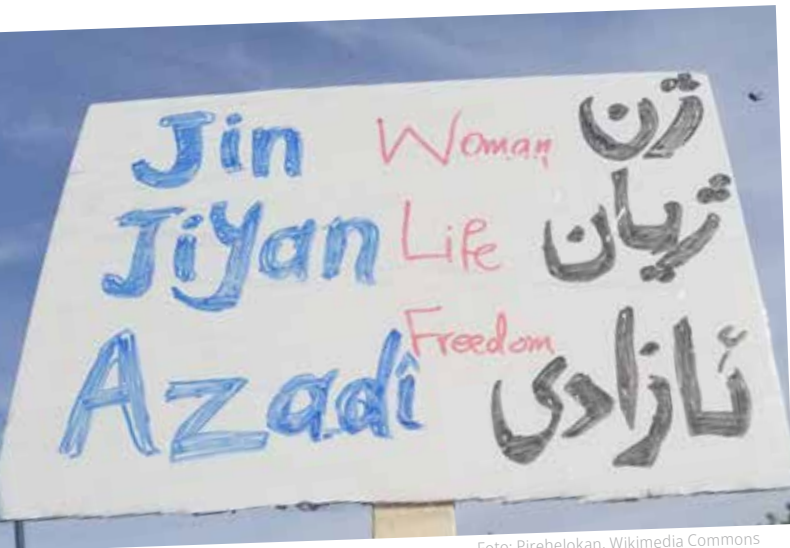 Jin Woman ژن
Jiyan Life ژیان
Azadî Freedom ئازادی
Foto: Pirehelokan, Wikimedia Commons